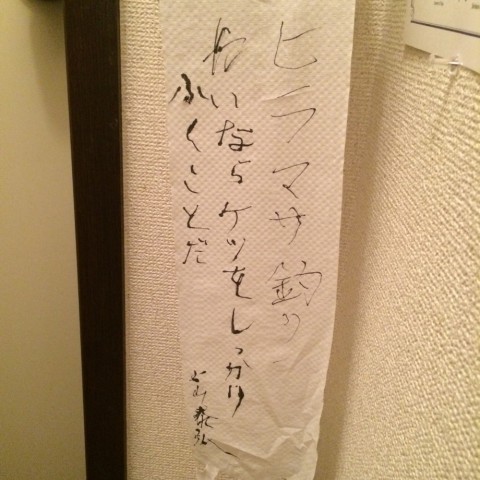 ヒラマサ釣り
たいならケツをしっかり
ふくことだ
泰弘